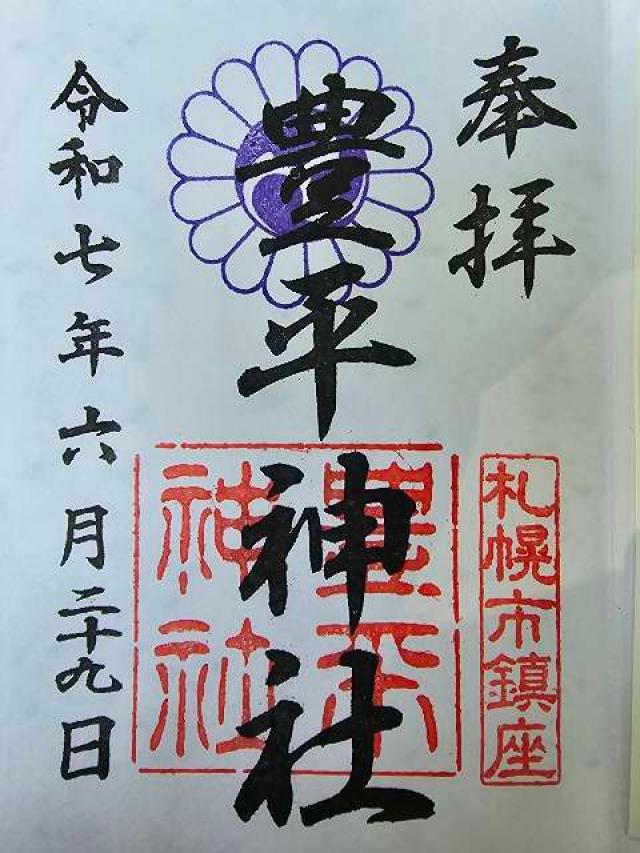 奉拝
札幌市鎮座
豊平神社
豊平神社
令和七年六月二十九日